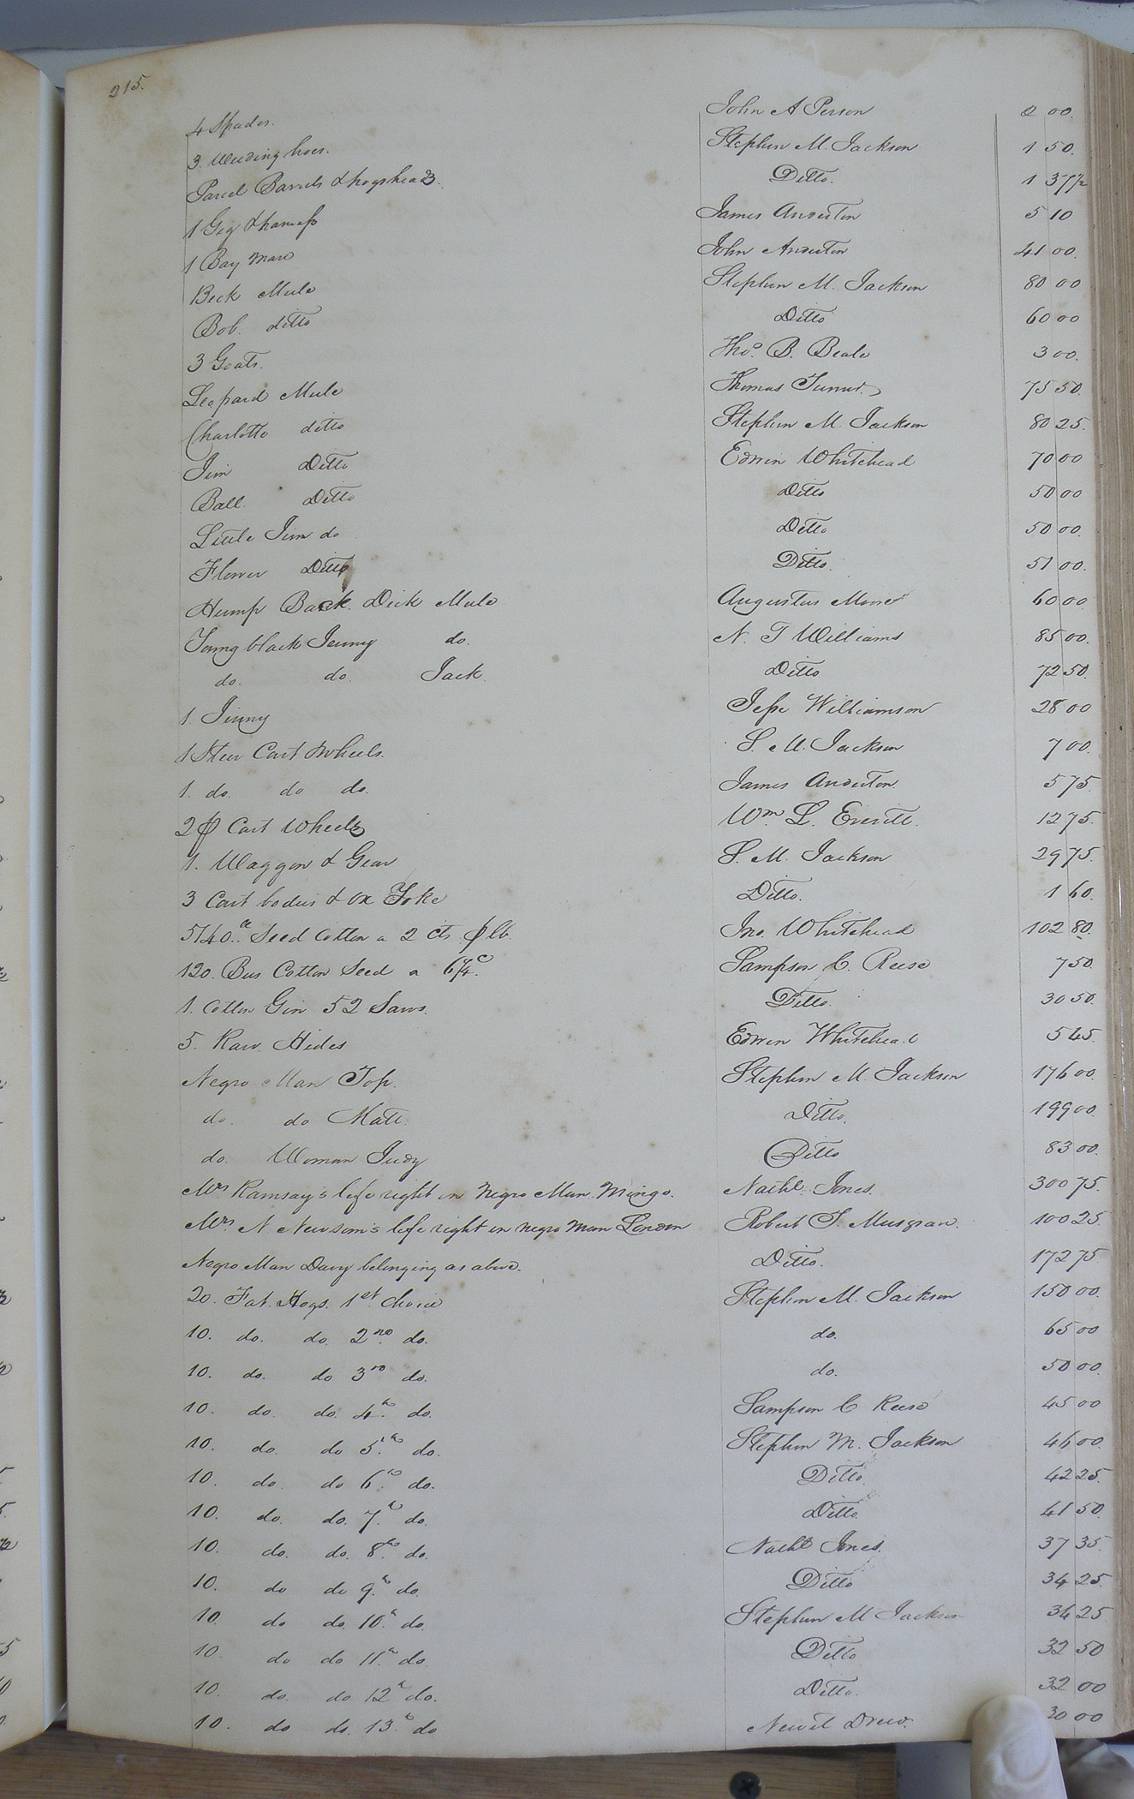 215.
4 Spades. John A Person 2 00
3 Weeding hoes. Stephen M. Jackson 1 50.
Parcel Barrels & hogsheads. Ditto. 1 37½
1 Gig & harness James Anderton 5 10
1 Bay Mare John Anderton 41 00.
Beck Mule Stephen M. Jackson 80 00
Bob. ditto Ditto 60 00
3 Goats. Tho.s B. Beale 3 00.
Leopard Mule Thomas Turner 75 50.
Charlotte ditto Stephen M. Jackson 80 25.
Jim Ditto Edwin Whitehead 70 00
Ball Ditto Ditto 50 00
Little Jim do Ditto 50 00.
Flower Ditto Ditto. 51 00.
Hump Back Dick Mule Augustus 60 00
Young black Jenny do. N. T Williams 85 00.
do. do Jack Ditto 72 50.
1. Jinny Jesse Williamson 28 00
1 Steer Cart Wheels. S. M. Jackson 7 00.
1. do. do do. James Anderton. 5 75.
2 p Cart Wheels Wm. L. Everitt. 12 75.
1. Waggon & Gear S. M. Jackson 29 75.
3 Cart bodies & ox Yoke Ditto. 1 60.
5140 Seed Cotton a 2 cts p lb. Jno. Whitehead 102 80.
120. Bus Cotton Seed a 6¼c. Sampson C. Reese 7 50.
1. Cotton Gin 52 Saws. Ditto. 30 50.
5. Raw Hides Edwin Whitehead 5 45.
Negro Man Top. Stephen M. Jackson 176 00.
do. do Matt. Ditto. 199 00.
do. Woman Judy Ditto 83 00.
Mrs Ramsay's life right in Negro Man Mingo. Nathl. Jones. 300 75.
Mrs N Newsom's life right in negro Man London Robert S. Musgrav. 100 25.
Negro Man Davy belonging as above. Ditto. 172 75
20. Fat. Hogs. 1st. Choice Stephen M. Jackson 150 00.
10. do. do. 2nd do. do. 65 00
10. do. do 3rd do. do. 50 00.
10. do. do. 4th. do. Sampson C Reese 45 00
10. do. do 5th do. Stephen M. Jackson 46 00.
10. do. do 6th do. Ditto. 42 25.
10. do. do. 7th do. Ditto. 41 50.
10. do. do. 8th. do. Nathl Jones. 37 35.
10. do do 9th do. Ditto 34 25
10. do do. 10th do. Stephen M Jackson 34 25
10. do do 11th do. Ditto 32 50
10. do. do 12th do. Ditto. 32 00
10. do do. 13th do Newit Drew. 30 00